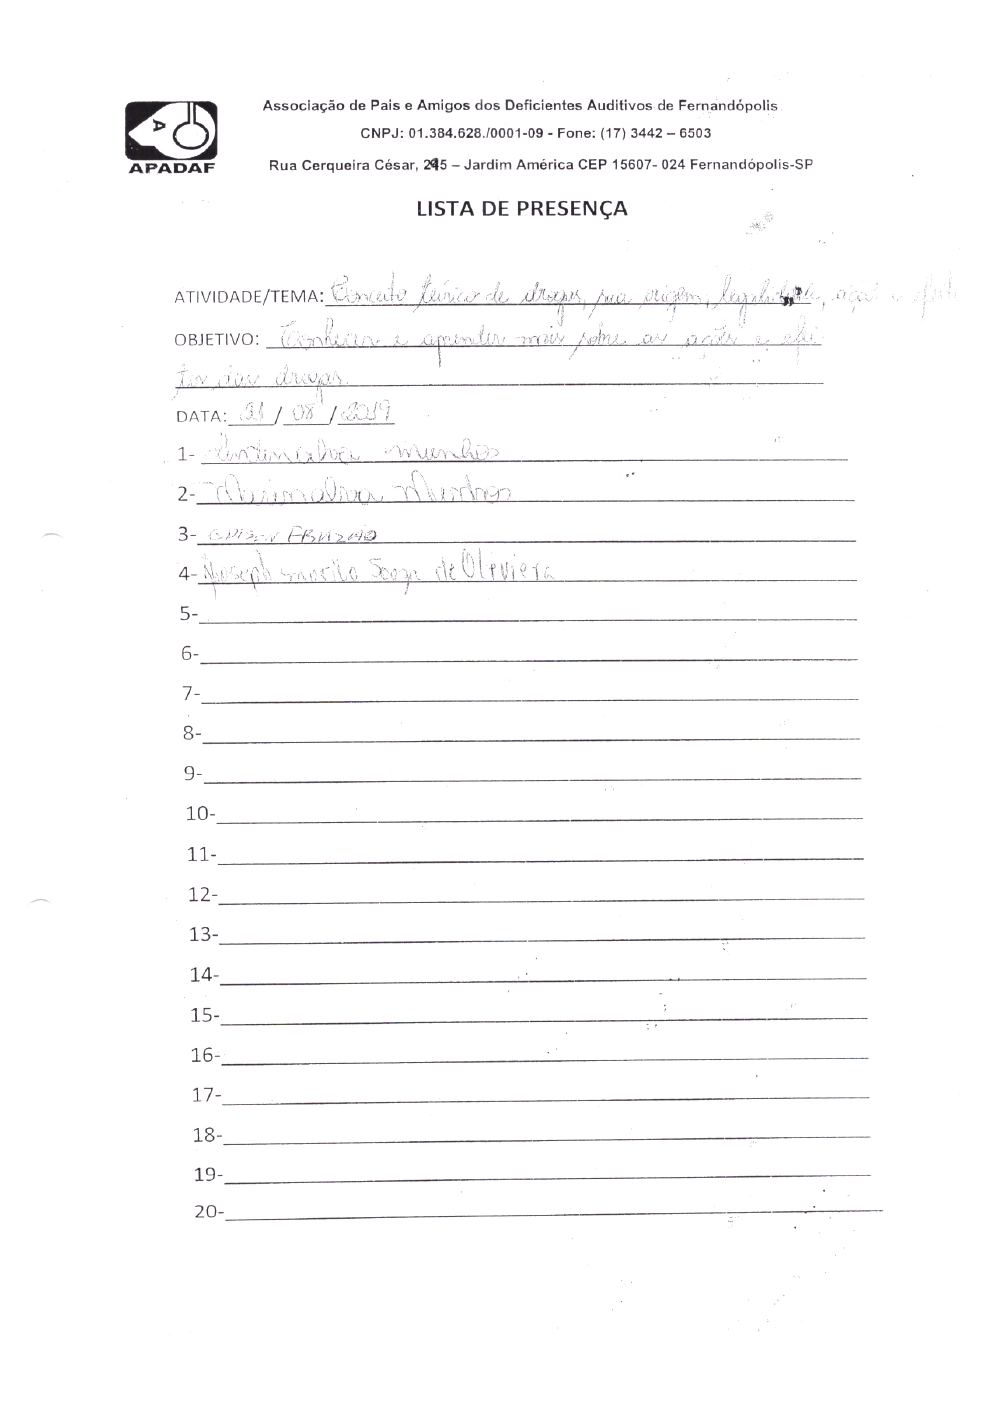 Associação de Pais e Amigos dos Deficientes Auditivos de Fernandópolis
CNPJ: 01.384.628./0001-09 - Fone: (17) 3442 – 6503
APADAF
Rua Cerqueira César, 295 – Jardim América CEP 15607- 024 Fernandópolis-SP
LISTA DE PRESENÇA
ATIVIDADE/TEMA: Conceito teórico de drogas, sua origem, legalidade, ação e
OBJETIVO: Conhecer e aprender mais sobre as ações e efei
tos das drogas.
DATA: 21/08/2019
1- munhos
2-
3-
4- Joseph Souza de Oliviera
5-
6-
7-
8-
9-
10-
11-
12-
13-
14-
15-
16-
17-
18-
19-
20-